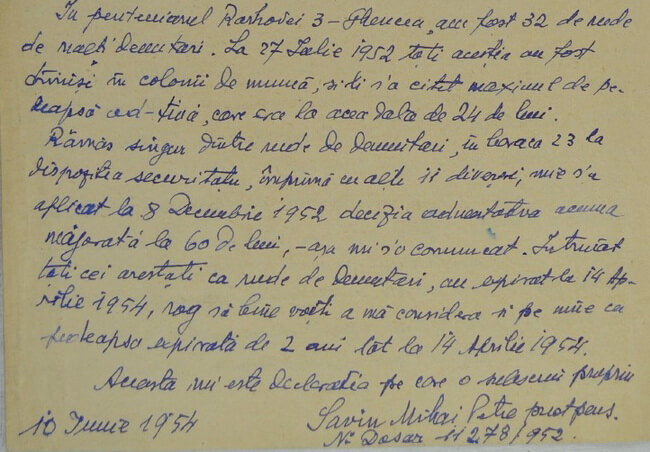 In penitenciarul Rahovei 3 – Ghencea, am fost 32 de rude
de nalți demnitari. La 27 Iulie 1952 toți aceștia au fost
trimiși în colonii de muncă, și li s'a citit maximul de pe-
deapsă ad-tivă, care era la acea dată de 24 de luni.
Rămas singur dintre rude de demnitari, în baraca 23 la
dispoziția securităței, împreună cu alți 11 diverși, mie s'a
aplicat la 8 Decembrie 1952 decizia administrativa acuma
majorată la 60 de luni, – așa mi s'a comunicat. Intrucât
toți cei arestați ca rude de demnitari, au expirat la 14 Ap-
rilie 1954, rog să bine voiți a mă considera și pe mine cu
pedeapsa expirată de 2 ani tot la 14 Aprilie 1954.
Aceasta mi este declarația pe care o
10 Iunie 1954
Savin Mihai Petre
No Dosar 11278/952.